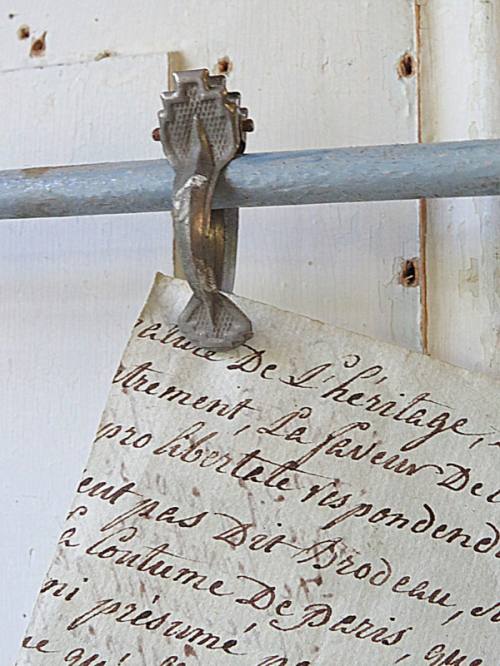 nature De L'héritage,
trement, La faveur De
pro libertate rispondend
eut pas Dit Brodeau,
la Coutume De Paris, que
ni présumé
e qu'